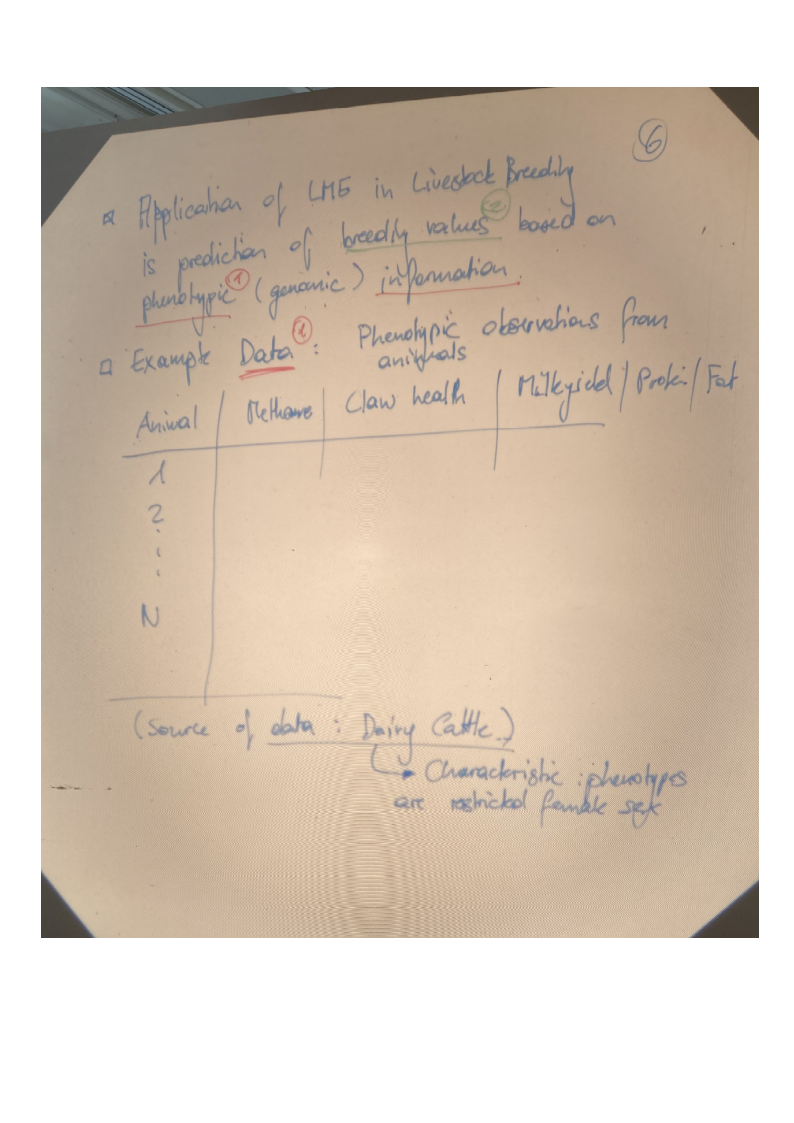 6
Application of LME in Livestock Breeding
is prediction of breeding values 2 based on
phenotypic 1 (genomic) information.
Example Data 1 : Phenotypic observations from
animals
Animal | Methane | Claw health | Milkyield / Protein / Fat
1
2
⋮
N
(Source of data : Dairy Cattle)
Characteristic : phenotypes
are restricted female sex